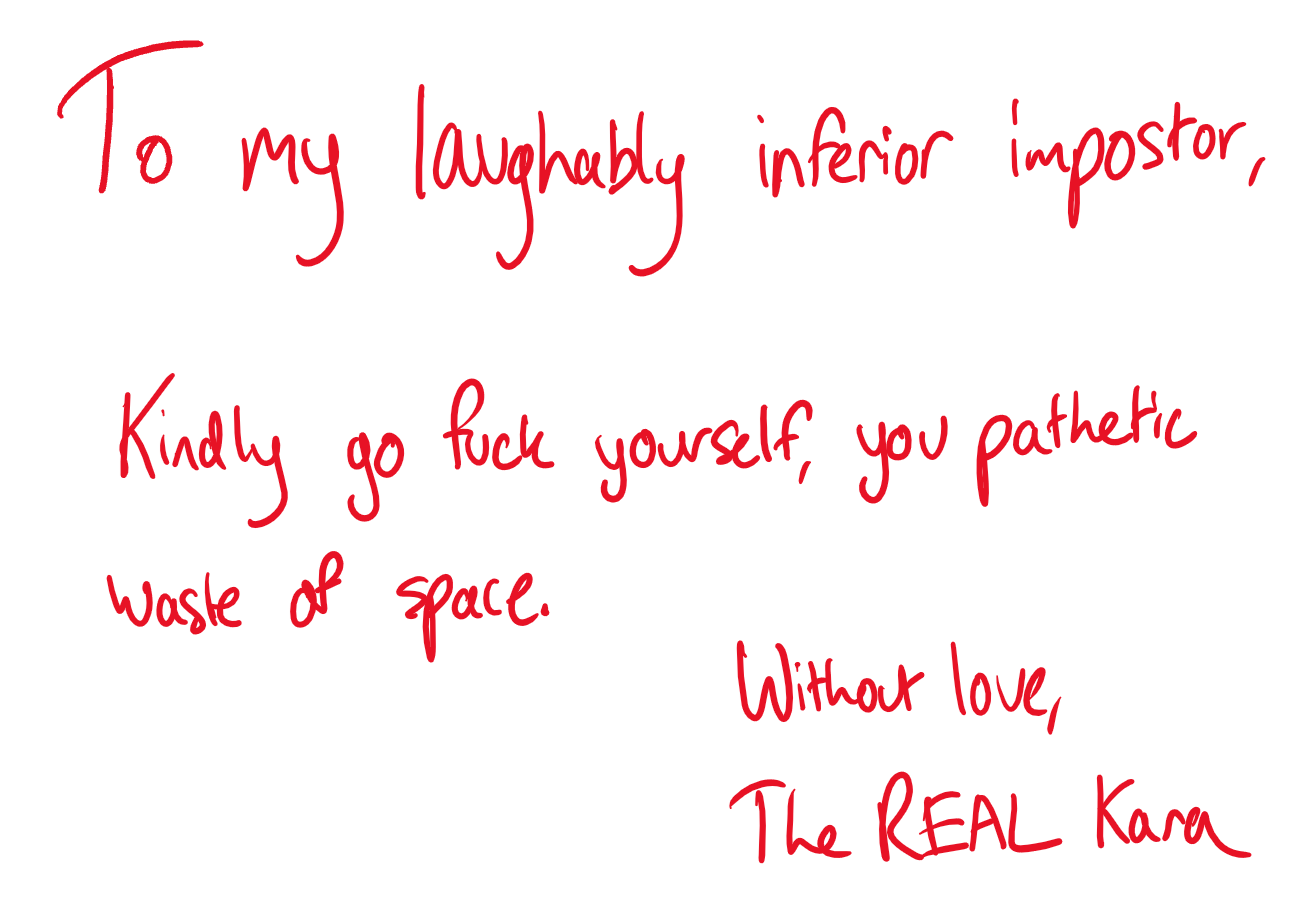 To my laughably inferior impostor,
Kindly go fuck yourself, you pathetic
waste of space.
Without love,
The REAL Kara